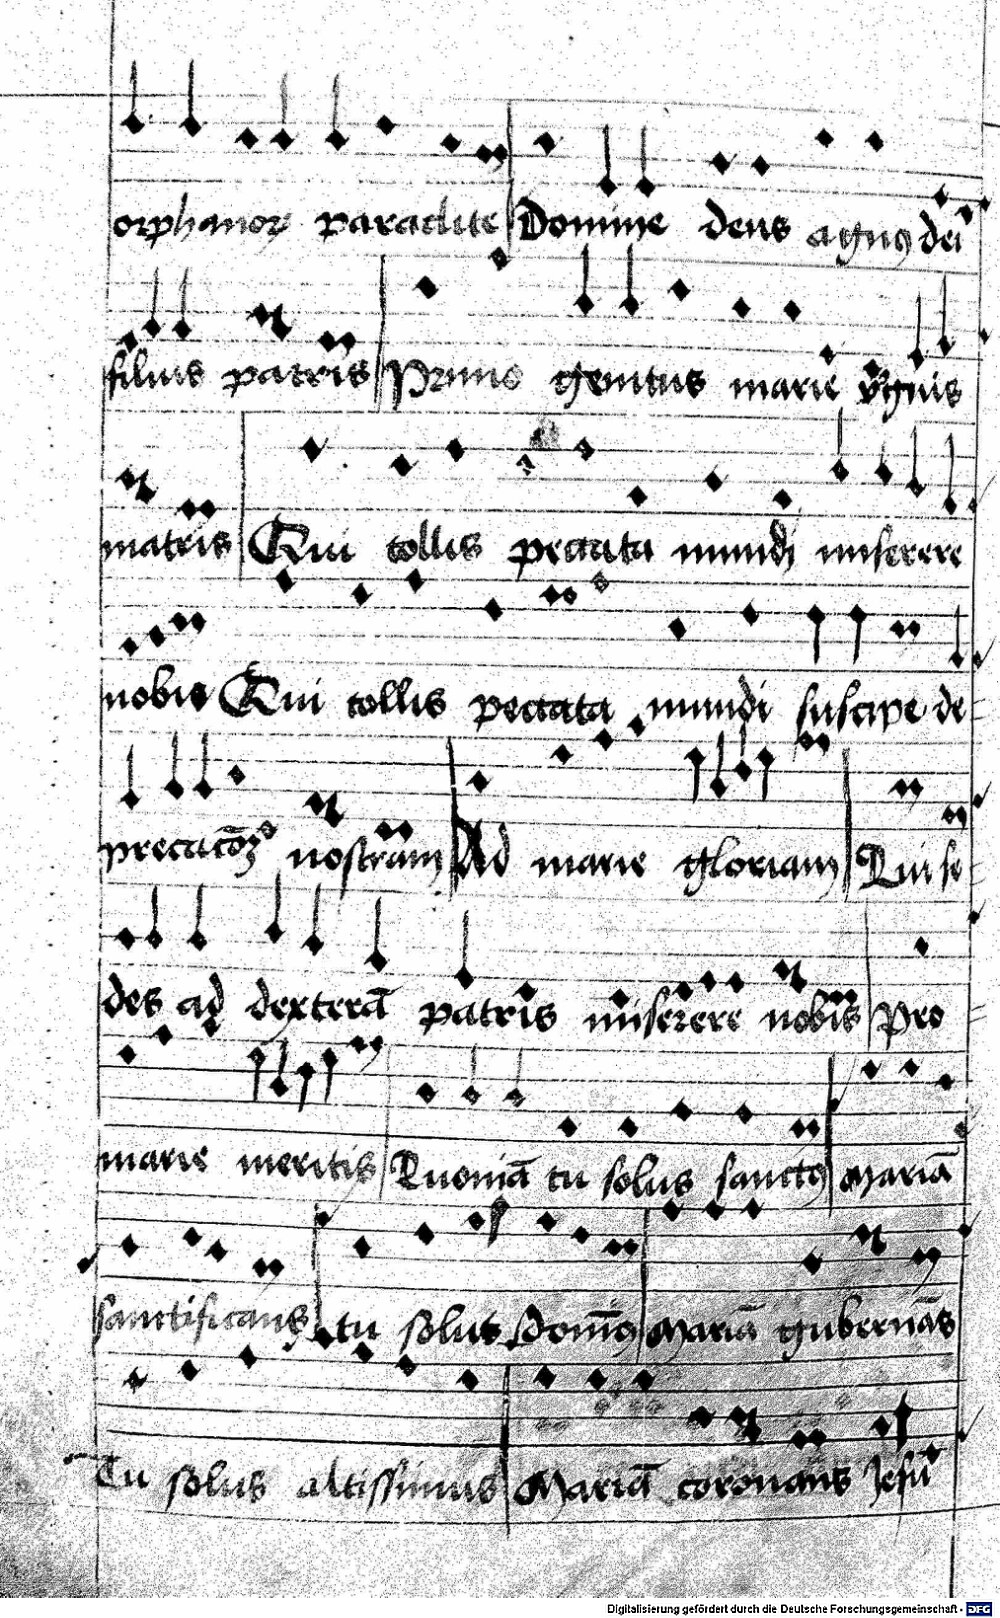 orphanoꝝ paraclite Domine deus agnꝰ dei
filius patris Primo genitus marie v̓ginis
matris Qui tollis peccata mundi miserere
nobis Qui tollis peccata mundi suscipe de
precacōeꝫ nostram Ad marie gloriam Qui se
des ad dexterā patris miserere nobis Pro
marie meritis Quoniā tu solus sanctꝰ Mariā
sanctificans tu solus domīꝰ Mariā gubernās
Tu solus altissimus Mariā coronans Jesu
Digitalisierung gefördert durch die Deutsche Forschungsgemeinschaft - DFG